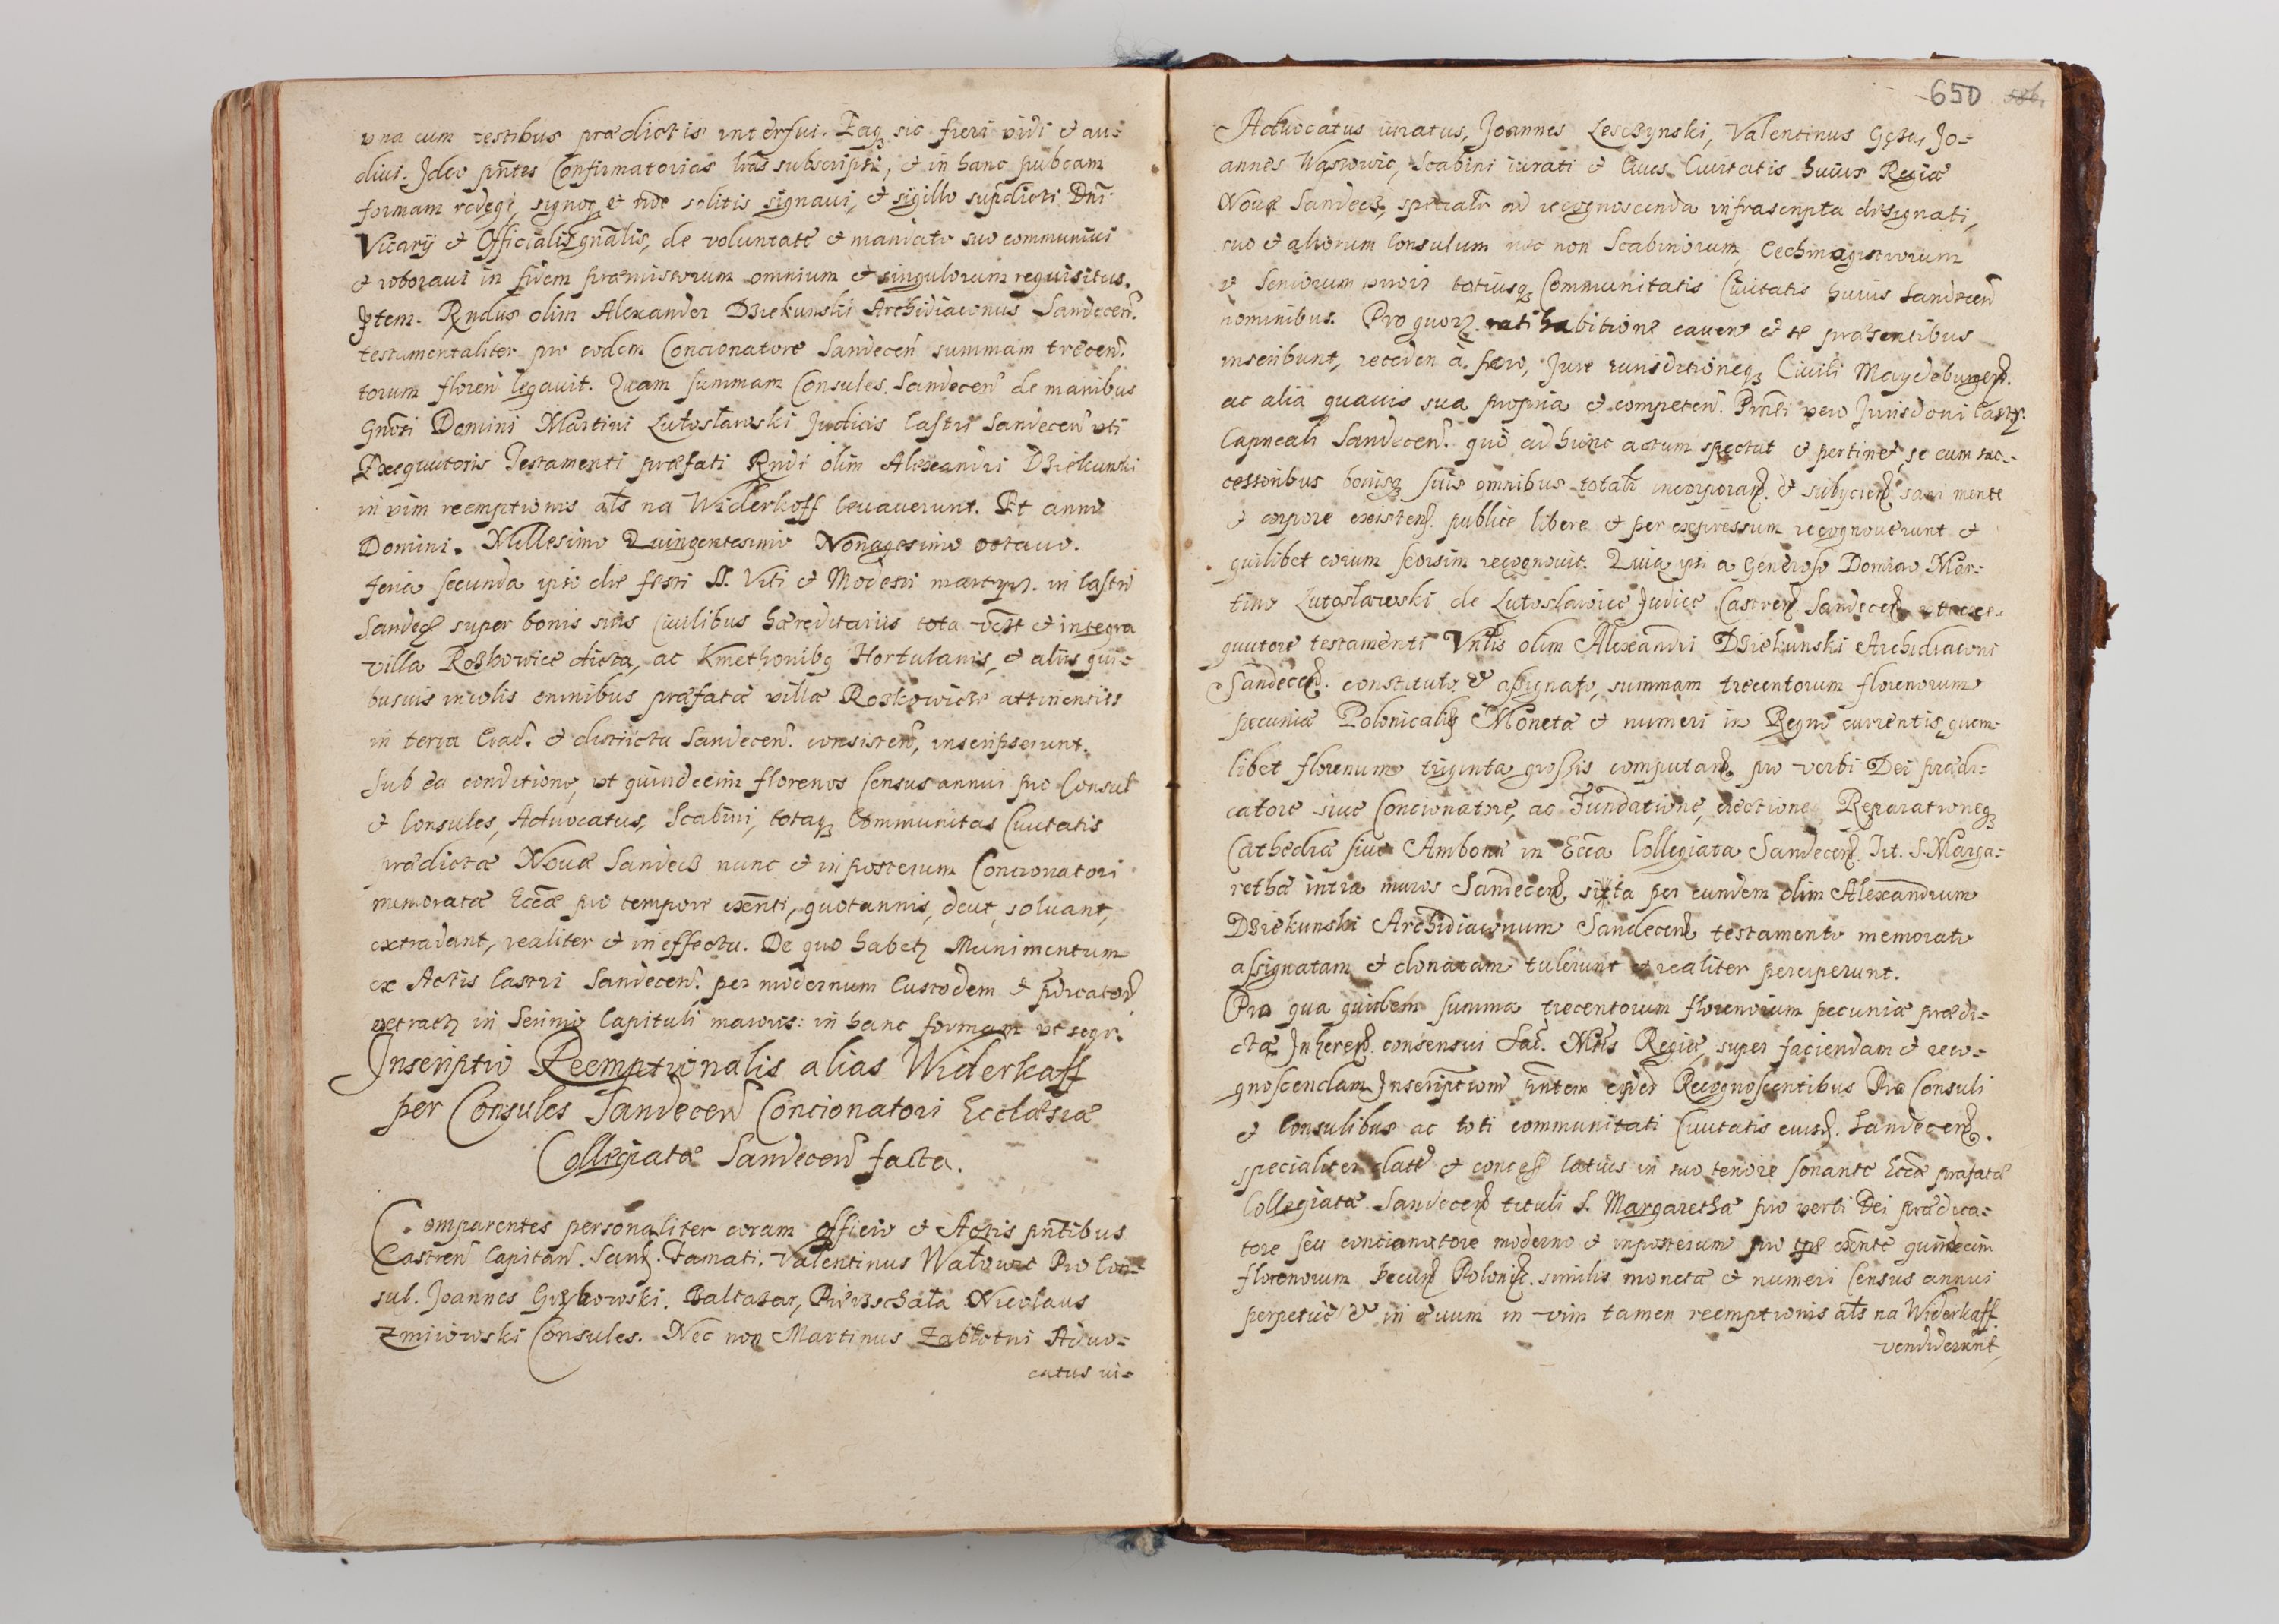 vna cum testibus prædictis interfui. Eaq₃ sic fieri vidi et au=
diui. Ideo pñtes Confirmatorias lras subscripsi, et in hanc pubcam
formam redegi, signoq₃ et noe solitis signaui, et sigillo supdicti Dni
Vicarÿ et Officialis gnalis, de voluntate et mandato suo communiui
et roboraui in fidem præmissorum omnium et singulorum requisitus.
Item. Rndus olim Alexander Dziekunski Archidiaconus Sandecen.
testamentaliter pro eodem Concionatore Sandecen summam trecen.
torum floren legauit. Quam summam Consules Sandecen de manibus
Gnosi Domini Martini Lutosławski Judicis Castri Sandecen vti
Exequutoris Testamenti præfati Rndi olim Alexandri Dziekunski
in vim reemptionis als na Widerkoff leuauerunt. Et anno
Domini. Millesimo Quingentesimo Nonagesimo octauo.
feria secunda ipso die festi SS. Viti et Modesti martyrum. in Castro
Sandecz super bonis suis Ciuilibus hæreditariis tota vest et integra
villa Roszkowice dicta, ac Kmethonibq Hortulanis, et aliis qui=
busuis incolis omnibus præfatæ villæ Roszkowicze attinentiis
in terra Crac. et districtu Sandecen. consisten, inscripserunt.
Sub ea conditione, vt quindecim florenos Census annui Pro Consul
et Consules, Aduocatus, Scabini, totaq₃ Communitas Ciuitatis
prædictæ Nouæ Sandecz nunc et in posterum Concionatori
memoratæ Eccæ pro tempore exnti, quotannis, dent, soluant,
extradant, realiter et in effectu. De quo habetr Munimentum
ex Actis Castri Sandecen. per modernum Custodem et pdicatorē
extractū in Scrinio Capituli maioris: in hanc formam vt seqr.
Inscriptio Reemptionalis alias Widerkaff
per Consules Sandecen Concionatori Ecclæsiæ
Collegiatæ Sandecen facta.
Comparentes personaliter coram officio et Actis pntibus
Castren Capitan. Sand. Famati. Valentinus Watowic Pro Con=
sul. Joannes Grzybowski. Baltazar, Pierzchała Nicolaus
Zmiiowski Consules. Nec non Martinus Zabłotni Aduo=
catus iu=
650 586.
Aduocatus iuratus, Joannes Leszczynski, Valentinus Gęba, Jo=
annes Wąsowic, Scabini iurati et Ciues Ciuitatis huius Regiæ
Nouæ Sandecz, specialr ad recognoscenda infrascripta designati,
suo et aliorum Consulum nec non Scabinorum, Cechmagistrorum
et Seniorum totiusq₃ Communitatis Ciuitatis huius Sandecen
nominibus. Pro quorum rati habitione cauent et se præsentibus
inscribunt, receden à foro, Jure iurisditioneq₃ Ciuili Maydeburgen.
ac alia quauis sua propria et competen. Prnti vero Jurisdoni Castr.
Capneali Sandecen. quo ad hunc actum spectat et pertinet, se cum suc=
cessoribus bonisq₃ suis omnibus totalr incorporan. et subÿcien sani mente
et corpore existen. publice libere et per expressum recognouerunt et
quilibet eorum seorsim recognouit. Quia ipsi a Generoso Domino Mar=
tino Lutosławski de Lutosławice Judice Castren Sandecen vt exe=
quutore testamenti Vnlis olim Alexandri Dziekunski Archidiaconi
Sandecen. constituto, et assignato, summam trecentorum florenorum
pecuniæ Polonicalis Monetæ et numeri in Regno currentis, quem=
libet florenum triginta grossis computan. pro verbi Dei prædi=
catore siue Concionatore, ac Fundatione, erectione, Reparationeq₃
Cathedræ siue Ambonæ in Ecca Collegiata Sandecen. Tit. S. Marga=
rethæ intra muros Sandecen. sita per eundem olim Alexandrum
Dziekunski Archidiaconum Sandecen testamento memorato
assignatam et donatam tulerunt et realiter perceperunt.
Pro qua quidem summa trecentorum florenorum pecuniæ prædi=
ctæ Inheren. consensui Sac. Mtis Regiæ, super faciendam et reco=
gnoscendam Inscriptiom pntem eisdē Recognoscentibus Pro Consuli
et Consulibus ac toti communitati Ciuitatis eiusd. Sandecen.
specialiter dato et concess latius in suo tenore sonante Eccæ præfatæ
Collegiatæ Sandecen tituli S. Margarethæ pro verbi Dei prædica=
tore seu concionatore moderno et inposterum pro tpe exnte quindecim
florenorum pecun Polonic. similis monetæ et numeri Census annui
perpetuè et in æuum in vim tamen reemptionis als na Widerkaff
vendiderunt,